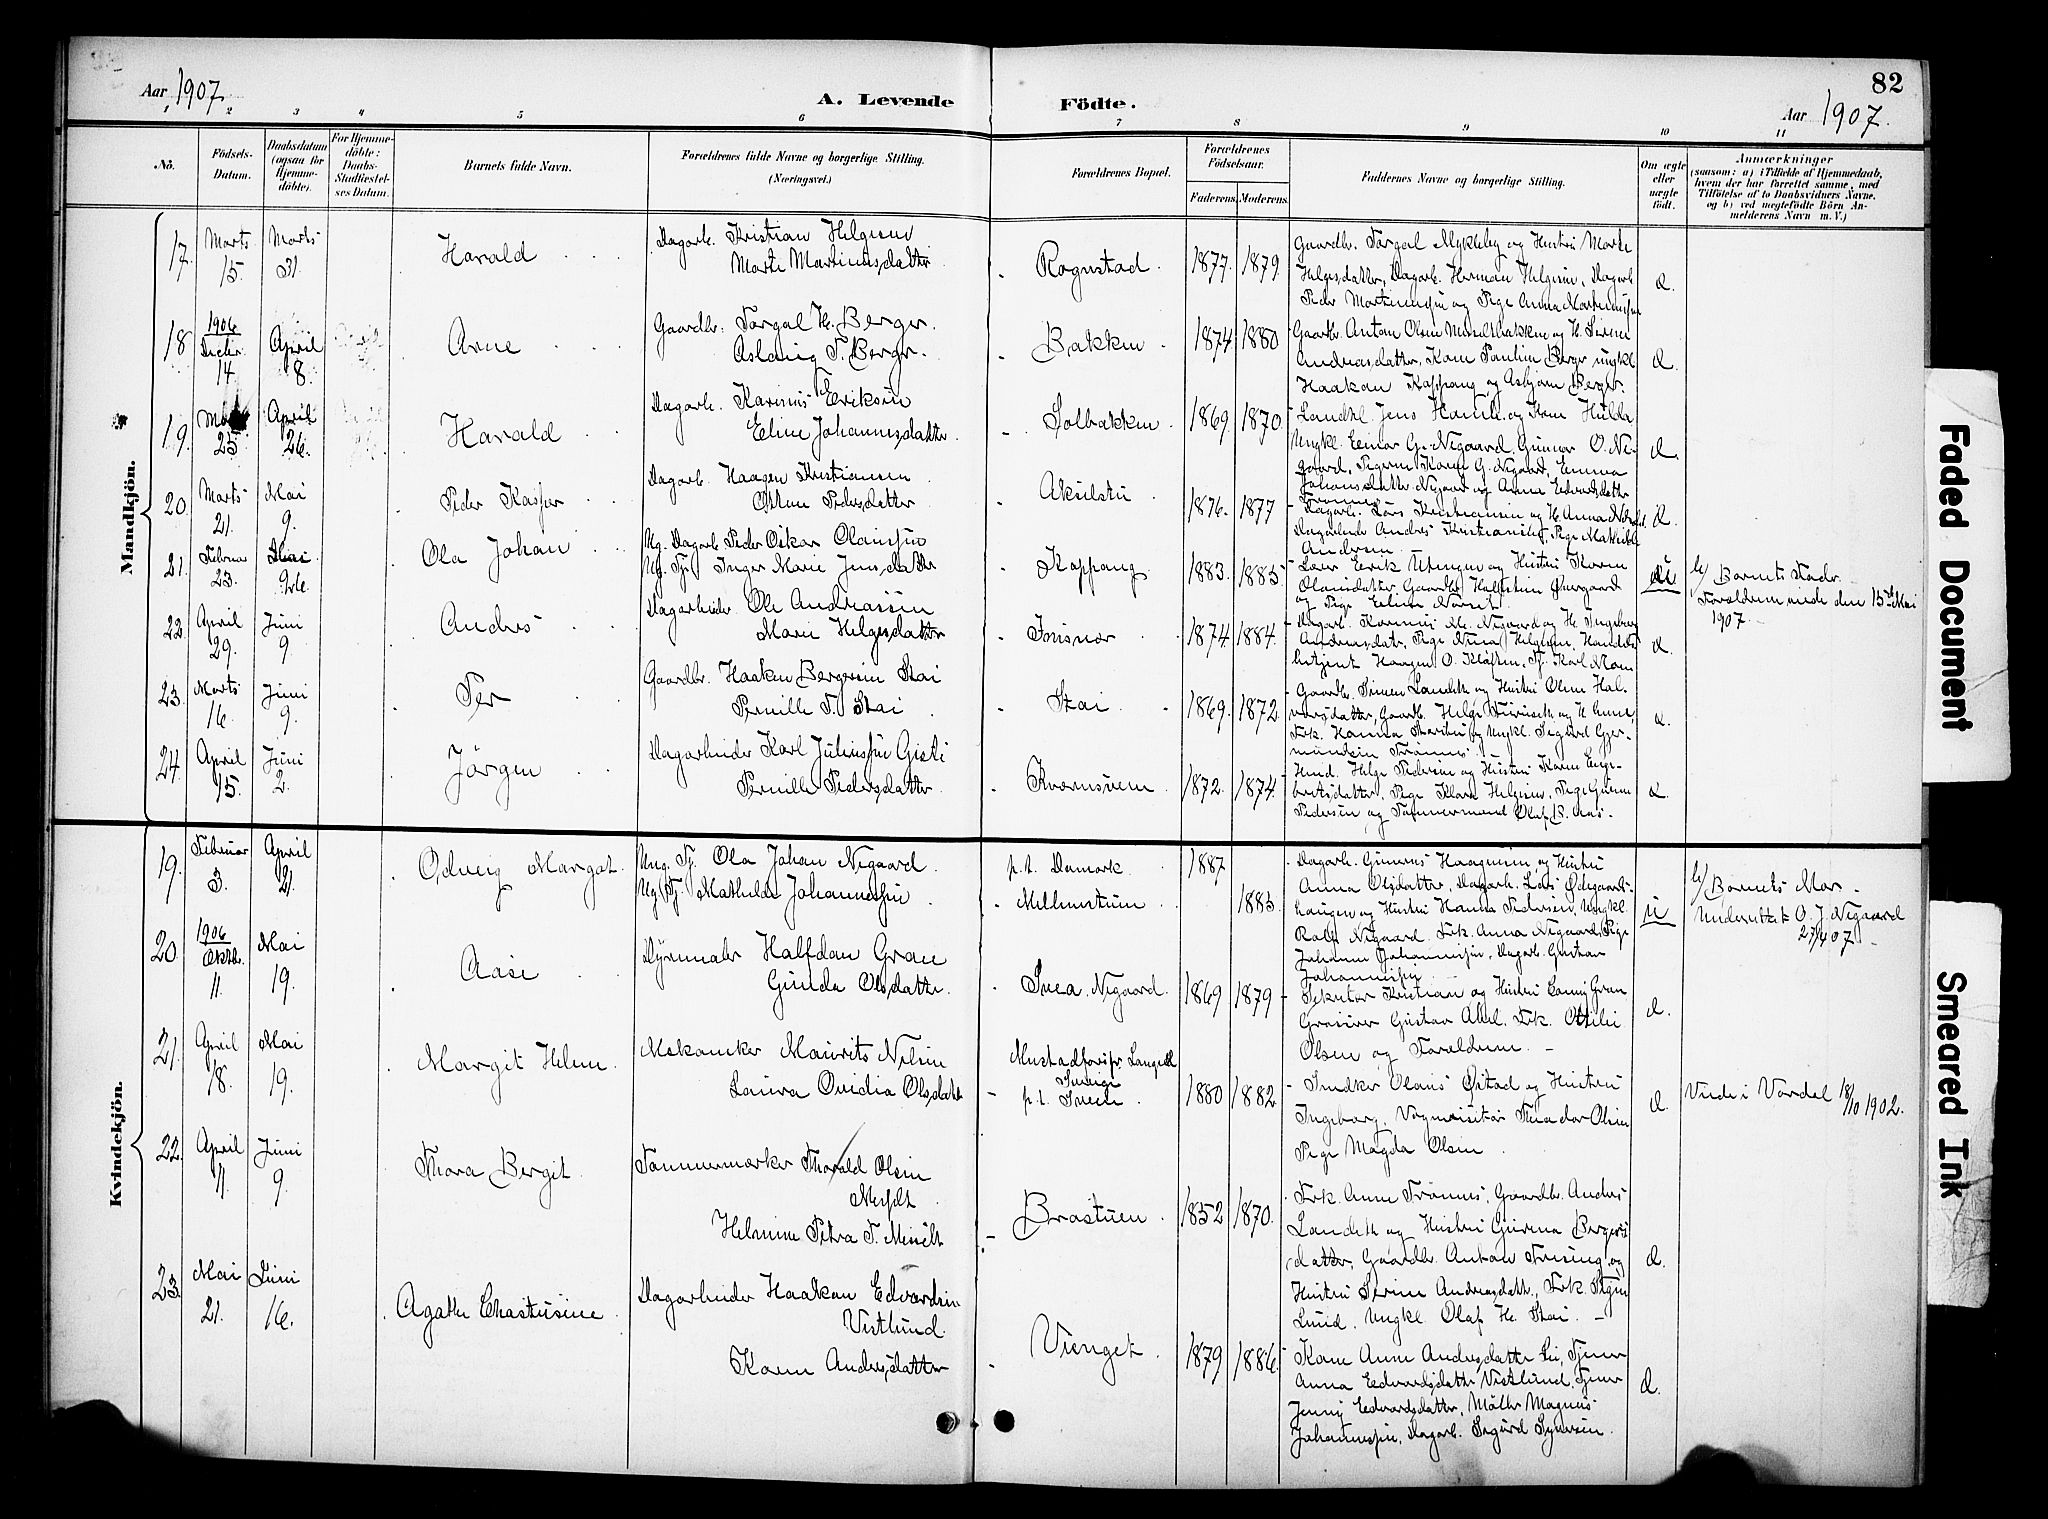 82
Aar 1907.
A. Levende Födte.
Aar 1907.
1 2 3 4 5 6 7 8 9 10 11
No.
Födsels-
Datum.
Daabsdatum
(ogsaa for
Hjemme-
döbte).
For Hjemme-
döbte:
Daabs-
Stadfæstel-
ses Datum.
Barnets fulde Navn.
Forældrenes fulde Navne og borgerlige Stilling.
(Næringsvei.)
Forældrenes Bopæl.
Forældrenes
Födselsaar.
Faderens. Moderens.
Faddernes Navne og borgerlige Stilling.
Om ægte
eller
uægte
födt.
Anmærkninger
(saasom: a) i Tilfælde af Hjemmedaab,
hvem der har forrettet samme, med
Tilföielse af to Daabsvidners Navne,
og b) ved uegtefödte Börn An-
melderens Navn m. V.)
Mandkjön.
17.
Marts
15.
Marts
31.
Harald
Dagarb. Kristian Helgesen
Marte Martinusdatter
Rognstad.
1877. 1879
Gaardbr. Torgal Mykleby og Hustru Marte
Helgesdatter, Dagarb. Herman Helgesen, Dagarb.
Peder Martinussen og Pige Anna Martinussen
18.
1906
Decbr.
14.
April
8.
Arne
Gaardbr. Torgal H. Berger.
Aslaug T. Berger.
Bakken
1874 1880
Gaardbr. Anton Olsen Messeltbakken og H. Serine
Andreasdatter, Kone Pauline Berger ungkl.
Haakon Koppang og Asbjørn Berger.
19.
25.
April
26.
Harald
Dagarb. Karinus Eriksen
Eline Johannesdatter.
Solbakken.
1869 1870
Landhl. Jens Hamle og Kone Hulda
Ungkl. Einar G. Negaard, Gunnar O. Ne-
gaard, Pigerne Karen G. Negaard, Emma
Johansdatter Negaard og Anna Edvardsdatter
20.
Marts
21.
Mai
9.
Peder Kasper
Dagarb. Haagen Kristiansen
Oline Pedersdatter
Akulstu
1876. 1877
Dagarb. Lars Kristiansen og H. Anna
Dagarbeider Andreas Kristiansen, Pige Mathilde
Andersen.
21.
Februar
23.
Mai
Ola Johan
Ug. Dagarb. Peder Oskar Olaussen
Ug. Tj. Inger Marie Jensdatter
Koppang
1883. 1885
Erik Utengen og Hustru Karen
Olausdatter, Gaardbr. Halvstein Øvergaard
og Pige Eline
b/ Barnets Fader.
Forældrene viede den 15de Mai
1907.
22.
April
29.
Juni
9
Anders
Dagarbeider Ole Andreassen
Marie Helgesdatter
1874. 1884.
Negaard og H. Ingeborg
Andreasdatr. Pige Nina Helgesen, Handels-
betjent Haagen O. Kloften, Tj. Karl Moen
23.
Marts
16.
Juni
9.
Per
Gaardbr. Haaken Bergersen Stai
Pernille T. Stai
Stai
1869. 1872.
Gaardbr. Simen Landeth og Hustru Oline Hal-
vorsdatter, Gaardb. Helge
Frk. Hanna
24.
April
15.
Juni
2.
Jørgen
Dagarbeider Karl Juliussen Gisti
Pernille Pedersdatter.
Kværnsveen
1872. 1874.
Husd. Helge Pedersen og Hustru Karen Enge-
bretsdatter, Pige Klara Helgesen, Pige Gurine
Pedersen og Tømmermand Olaf B. Aas.
Kvindekjön.
19.
Februar
3.
April
21.
Odveig Margot.
Ung. Tj. Ola Johan Negaard.
Ug. Tj. Mathilde Johannessen
p.t. Danmark
Mellemstuen
1887
1885.
Dagarb. Gunerus Haagensen og Hustru
Anna Olsdatter, Dagarb. Lars Ødegaards-
haugen og Hustru Hanna Pedersen, Ungkl.
Negaard. Frk. Anna Negaard, Pige
Johanne Johannessen, Dagarb. Gustav
Johannessen
u
b/ Barnets Mor.
Underrettet O. J. Negaard
27/4 07.
20.
1906
Oktbr.
11.
Mai
19.
Aase
Dyremaler Halfdan Gran
Gunda Olsdatter.
Svea, Negaard.
1869 1879
Kristian og Hustru Fanny Gran
Grosserer Gustav Abel. Frk. Ottilie
Olsen og Forældrene.
21.
April
18.
Mai
19.
Margit Helene
Mekaniker Mauritz Nelson
Laura Ovidia Olsdatter
p.t. Sveen
1880 1882
Smedker Olaus Østad og Hustru
Ingeborg, Vognvisitør Teador Olsen
Pige Magda Olsen
Viede i Værdal 18/10 1902.
22.
April
11.
Juni
9.
Thora Bergit.
Tømmermærker Thorald Olsen
Messelt
Helmine Petra T. Messelt
Brostuen.
1852 1870.
Frk. Anne Trønnes, Gaardbr. Anders
Landeth og Hustru Gurina Bergers-
datter, Gaardbr. Anton og
Hustru Serine Andreasdatter, Frk. Signe
Lund. Ungkl. Olaf H. Stai.
23.
Mai
21.
Juni
16.
Agathe Chastusine
Dagarbeider Haakon Edvardsen
Vestlund.
Karen Andersdatter
Vienget.
1879 1886.
Kone Anne Andersdatter Lie, Tjener
Anna Edvardsdatter Vestlund, Tjener
Jenny Edvardsdatter, Møller Magnus
Johannessen, Dagarb. Sigurd Syversen.
Faded Document
Smeared Ink